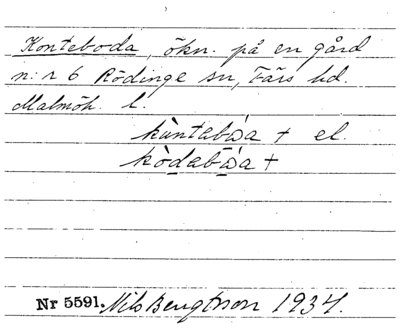 Konteboda, ökn. på en gård
n:r 6 Rödinge sn, Färs hd.
Malmöh. l.
kùntabòa + el.
kòdabòa +
Nr 5591. Nils Bengtsson 1934.